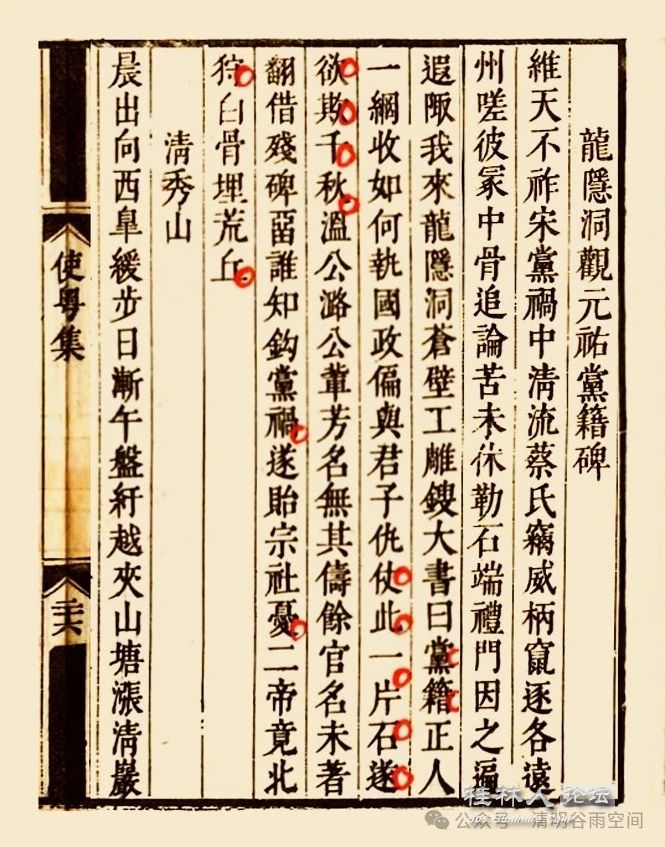 龍隱洞觀元祐黨籍碑
維天不祚宋黨禍中清流蔡氏竊威柄竄逐各遠
州嗟彼冢中骨追論苦未休勒石端禮門因之遍
遐陬我來龍隱洞蒼壁工雕鎪大書曰黨籍正人
一網收如何執國政偏與君子仇仗此一片石遂
欲欺千秋溫公潞公輩芳名無其儔餘官名未著
翻借殘碑畱誰知鈎黨禍遂貽宗社憂二帝竟北
狩白骨埋荒丘
清秀山
晨出向西皐緩步日漸午盤紆越夾山塘漲清巖
使粵集
二十六
桂林人论坛
公众号·清明谷雨空间